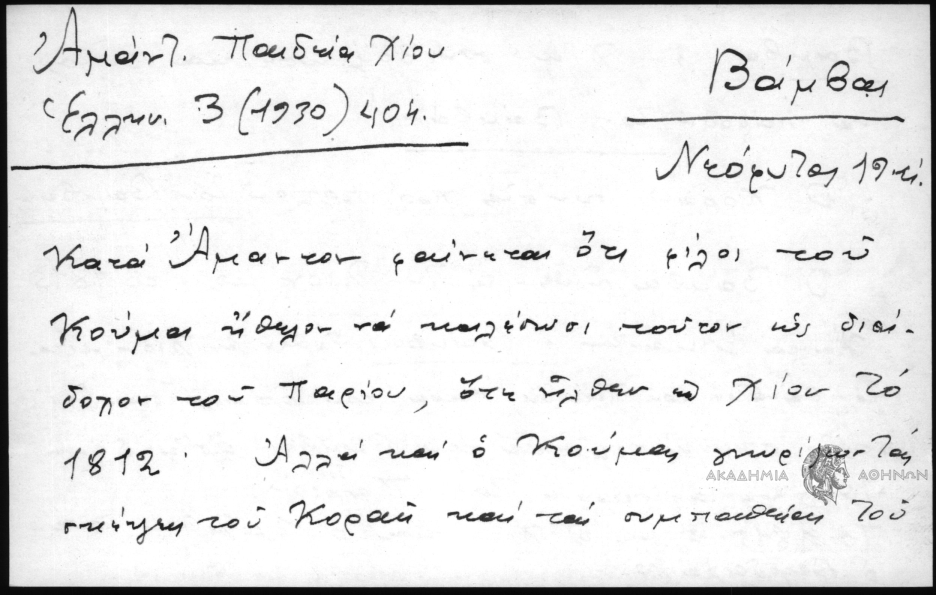 Ἀμάντ. Παιδεία Χίου
Ἑλλην. 3 (1930) 404.
Βάμβας
Νεόφυτος 19
Κατά Ἄμαντον φαίνεται ὅτι φίλοι τοῦ
Κούμα ἤθελον νά καλέσωσι τοῦτον ὡς διά-
δοχον τοῦ Παρίου, ὅτε ἦλθεν εἰς Χίον τό
1812. Ἀλλά καί ὁ Κούμας γνωρίζων τάς
σκέψεις τοῦ Κοραῆ καί τάς συμπαθείας τοῦ
ΑΚΑΔΗΜΙΑ ΑΘΗΝΩΝ